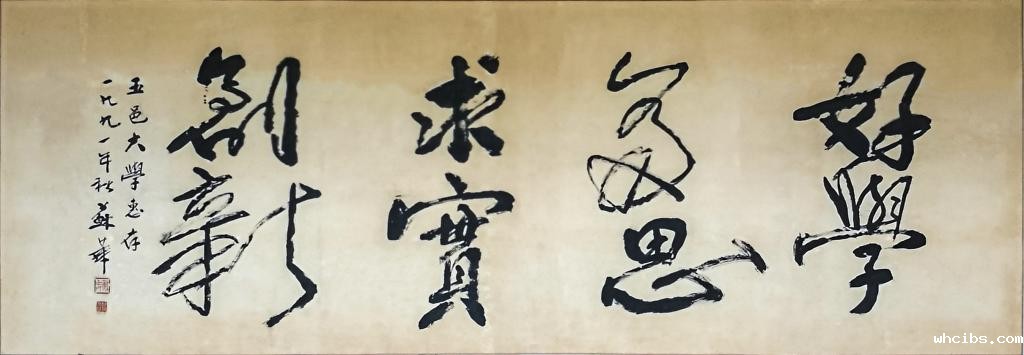 好學
多思
求實
創新
五邑大學惠存
一九九一年秋蘇華
whcibs.com